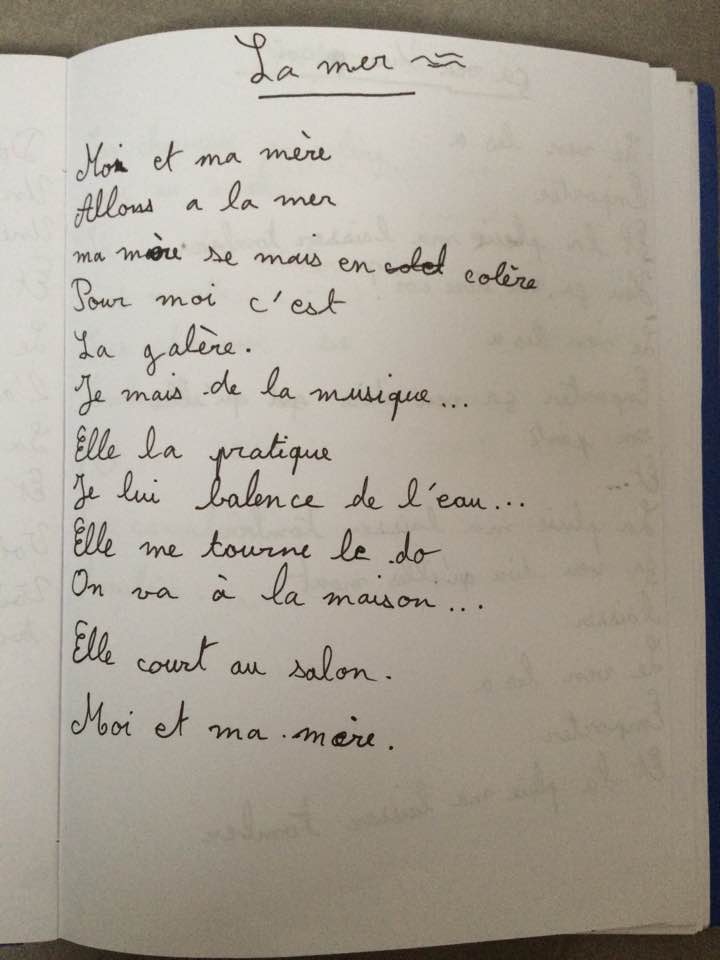 La mer
Moi et ma mère
Allons a la mer
ma mère se mais en colère
Pour moi c'est
La galère.
Je mais de la musique...
Elle la pratique
Je lui balence de l'eau...
Elle me tourne le do
On va à la maison...
Elle court au salon.
Moi et ma mère.